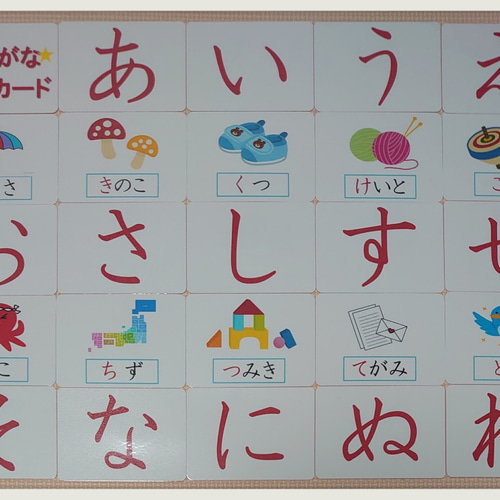 がな
カード
あ い う え
さ きのこ くつ けいと こ
さ し す せ
こ ちず つみき てがみ と
そ な に ぬ